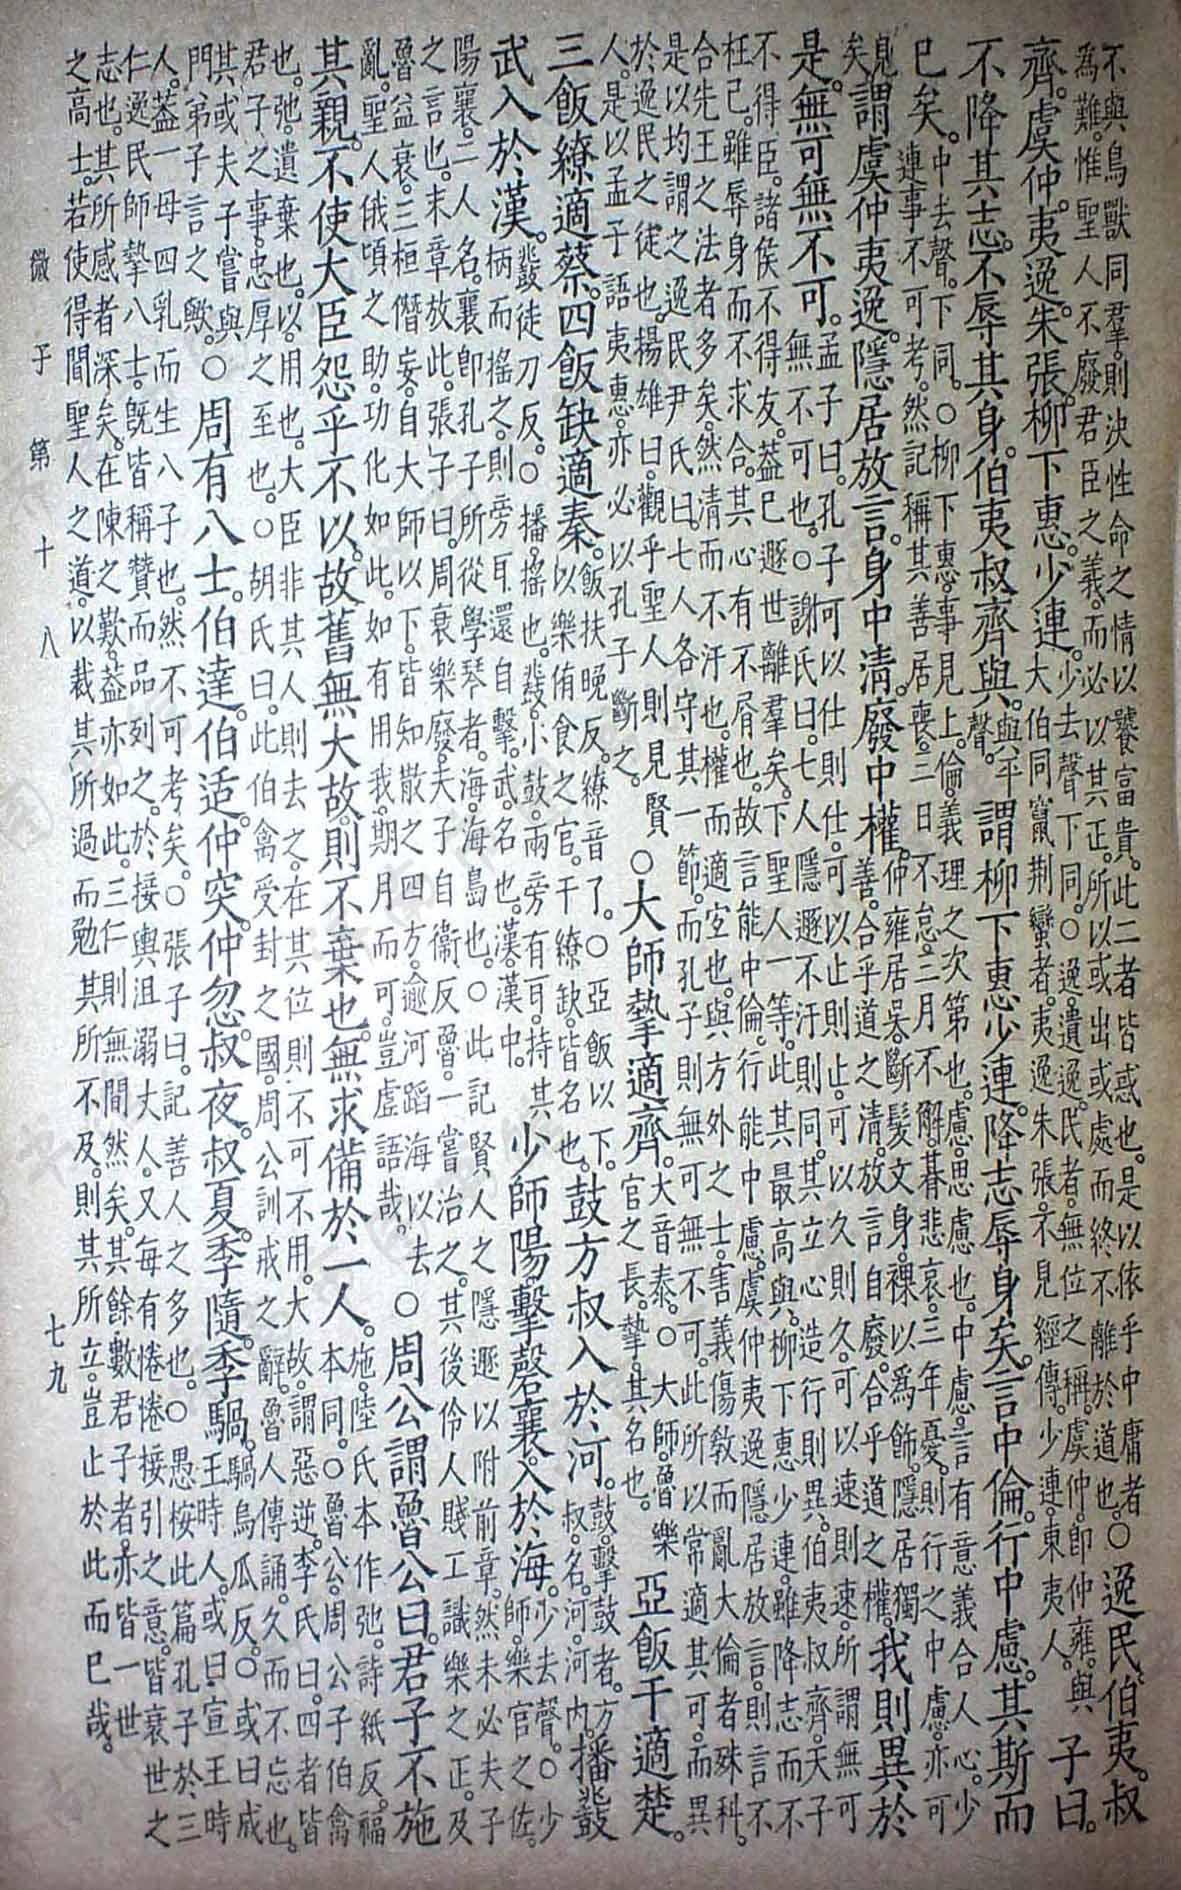 不與鳥獸同羣。則決性命之情以饕富貴。此二者皆惑也。是以依乎中庸者
為難。惟聖人不廢君臣之義。而必以其正。所以或出或處。而終不離於道也。○
逸民。伯夷。叔
齊。虞仲。夷逸。朱張。柳下惠。少連。
少去聲下同。○逸。遺逸。民者。無位之稱。虞仲。即仲雍。與
大伯同竄荊蠻者。夷逸朱張。不見經傳。少連。東夷人。
子曰。
不降其志。不辱其身。伯夷叔齊與。
與平聲
謂柳下惠少連。降志辱身矣。言中倫。行中慮。其斯而
已矣。
中去聲。下同。○柳下惠。事見上。倫。義理之次第也。慮。思慮也。中慮。言有意義合人心。少
連事不可考。然記稱其善居喪。三日不怠。三月不解。朞悲哀。三年憂。則行之中慮。亦可
見矣
謂虞仲夷逸。隱居放言。身中清。廢中權。
仲雍居吳。斷髮文身。裸以為飾。隱居獨
善。合乎道之清。放言自廢。合乎道之權。
我則異於
是。無可無不可。
孟子曰。孔子可以仕則仕。可以止則止。可以久則久。可以速則速。所謂無可
無不可也。○謝氏曰。七人隱遯不汙則同。其立心造行則異。伯夷叔齊。天子
不得臣。諸侯不得友。蓋已遯世離羣矣。下聖人一等。此其最高與。柳下惠少連。雖降志而不
枉己。雖辱身而不求合。其心有不屑也。故言能中倫。行能中慮。虞仲夷逸隱居放言。則言不
合先王之法者多矣。然清而不汙也。權而適宜也。與方外之士。害義傷教而亂大倫者殊科。
是以均謂之逸民。尹氏曰。七人各守其一節。而孔子則無可無不可。此所以常適其可。而異
於逸民之徒也。揚雄曰。觀乎聖人則見賢
人。是以孟子語夷惠。亦必以孔子斷之。
○大師摯適齊。
大音泰。○大師。魯樂
官之長。摯。其名也。
亞飯干適楚。
三飯繚適蔡。四飯缺適秦。
飯扶晚反。繚音了。○亞飯以下。
以樂侑食之官。干繚缺。皆名也。
鼓方叔入於河。
鼓。擊鼓者。方
叔。名。河。河內。
播鼗
武入於漢。
鼗徒刀反。○播。搖也。鼗。小鼓。兩旁有耳。持其
柄而搖之。則旁耳還自擊。武。名也。漢。漢中。
少師陽。擊磬襄。入於海。
少去聲。○少
師。樂官之佐。
陽襄。二人名。襄即孔子所從學琴者。海。海島也。○此記賢人之隱遯以附前章。然未必夫子
之言也。末章放此。張子曰。周衰樂廢。夫子自衛反魯。一嘗治之。其後伶人賤工識樂之正。及
魯益衰。三桓僭妄。自大師以下。皆知散之四方。逾河蹈海以去
亂。聖人俄頃之助。功化如此。如有用我。期月而可。豈虛語哉。
○周公謂魯公曰。君子不施
其親。不使大臣怨乎不以。故舊無大故。則不棄也。無求備於一人。
施。陸氏本作弛。詩紙反。福
本同。○魯公。周公子伯禽
也。弛。遺棄也。以。用也。大臣非其人則去之。在其位則不可不用。大故。謂惡逆。李氏曰。四者皆
君子之事。忠厚之至也。○胡氏曰。此伯禽受封之國。周公訓戒之辭。魯人傳誦。久而不忘也。
其或夫子嘗與
門弟子言之歟。
○周有八士。伯達。伯适。仲突。仲忽。叔夜。叔夏。季隨。季騧。
騧烏瓜反。○或曰成
王時人。或曰。宣王時
人。蓋一母四乳而生八子也。然不可考矣。○張子曰。記善人之多也。○愚按此篇。孔子於三
仁逸民師摯八士。既皆稱贊而品列之。於接輿沮溺丈人。又每有惓惓接引之意。皆衰世之
志也。其所感者深矣。在陳之歎。蓋亦如此。三仁則無間然矣。其餘數君子者。亦皆一世
之高士。若使得聞聖人之道。以裁其所過而勉其所不及。則其所立。豈止於此而已哉。
微子第十八
七九